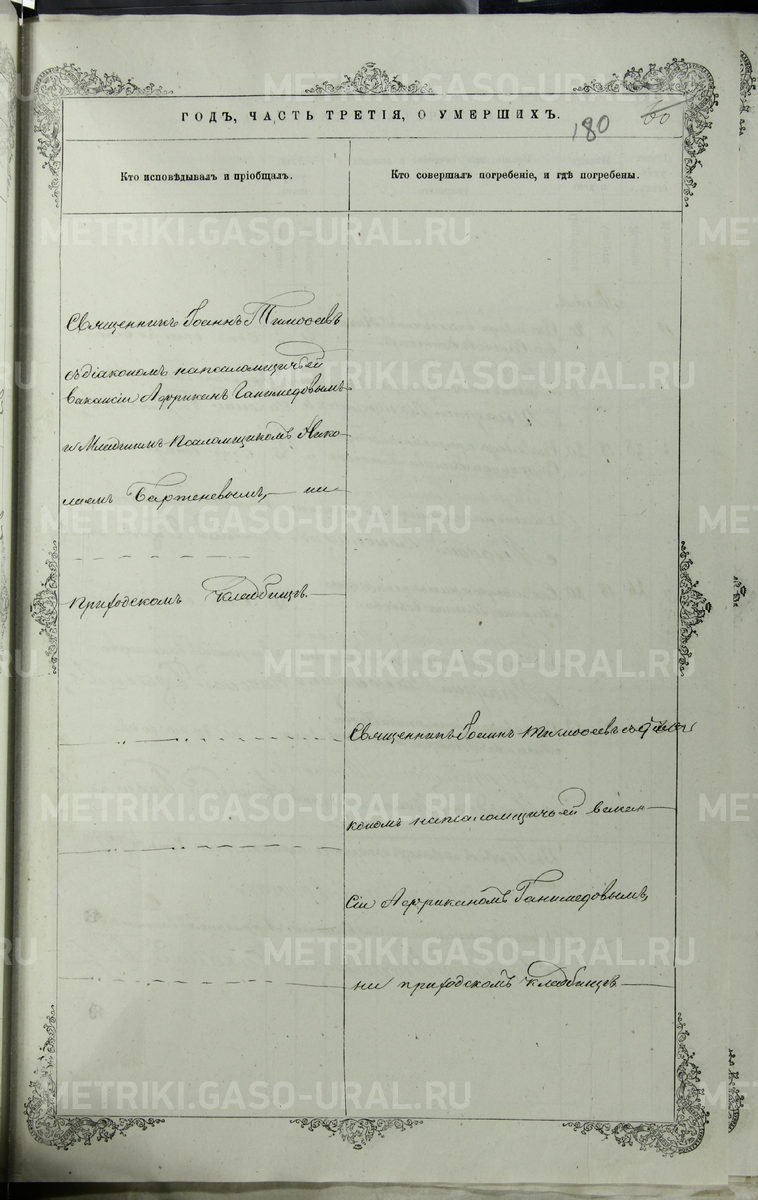 METRIKI.GASO-URAL.RU
ГОДЪ, ЧАСТЬ ТРЕТІЯ, О УМЕРШИХЪ.
180
60
Кто исповѣдывалъ и пріобщалъ.
Кто совершалъ погребеніе, и гдѣ погребены.
Священникъ Іоаннъ Тимоѳеевъ
съ діакономъ на псаломщичьей
вакансіи Африкан Ганимедовымъ
и Младшимъ Псаломщикомъ Нико-
лаемъ Бартеневымъ, на
приходскомъ кладбищѣ
Священникъ Іоаннъ Тимоѳеевъ съ діа
кономъ на псаломщичьей вакан-
сіи Африканомъ Ганимедовымъ,
на приходскомъ кладбищѣ